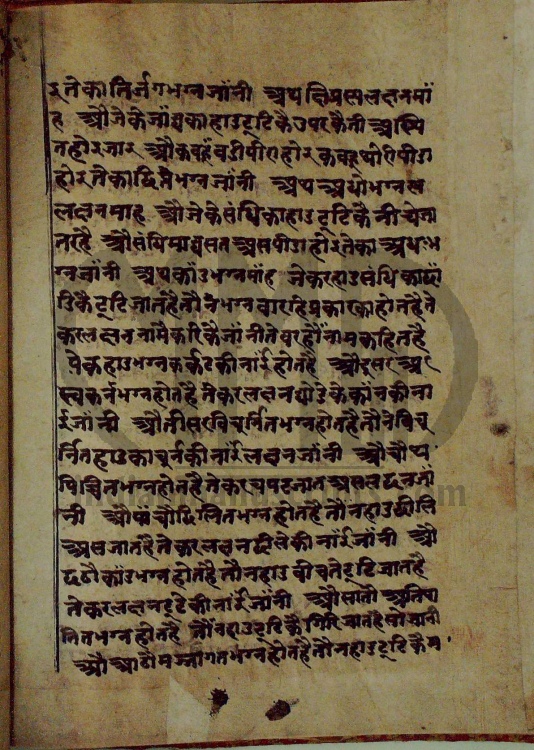 रतेका तिर्जगभग्न जांनी अथ क्षिप्तसलक्षनमां
ह औ जेके जांघ का हाड टूटिकै उपरकै नी
त होर जार औ कवहूं वडी पीरा होर कवहू थोरि पीरा
होर तेका द्विनेभग्न जांनी अथ अधोभग्न स
लक्षनमाह औ जेके संधि का हाड टूटिकै नीचे जा
तरहै औ संधिमा असपीरा होर तेका अधःभ
ग्न जांनी अथ कांडभग्नमांह जेकर हाड संधि का छां
डिकै टूटि जात है तौन भग्न वारहि प्रकार का होत है ते
कर लक्षन नामै करिकै जांनी ते पर हौं नाम कहित है
येक हाडभग्न कर्कटकी नांई होत है औ दूसर अर
स्वकर्नभग्न होत है तेकर लक्षन घोडेके कांनकी ना
ई जांनी औ तीसर विचूर्नितभग्न होत है तौने विचू
र्नित हाड का चूर्नकी नांई लक्षन जांनी औ चौथ
पिचितभग्न होत है तेकर लक्षन जां
नी औ पांचौ छिलितभग्न होत है तौन हाड छीलि
अस जात है तेकर लक्षन छीलेकी नांई जांनी औ
छठौ कांडभग्न होत है तौन हाड वीचते टूटि जात है
तेकर लक्षन टूटेकी नांई जांनी औ सातौ अतिपा
तितभग्न होत है तौन हाड टूटिकै गिरि जात है सो जानी
औ आठौ मज्जागतभग्न होत है तौन हाड टूटिकै म